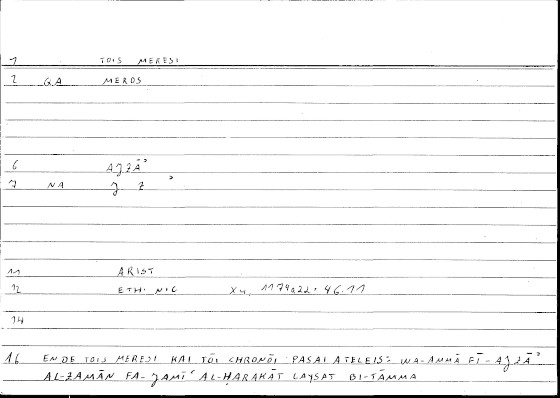 1 TOIS MERESI
2 GA MEROS
6 AJZĀʾ
7 NA J Z ʾ
11 ARIST
12 ETH. NIC X4, 1174a22: 46.11
14
16 EN DE TOIS MERESI KAI TŌI CHRONŌI PASAI ATELEIS: WA-AMMĀ FĪ-AJZĀʾ
AL-ZAMĀN FA-JAMĪʿ AL-ḤARAKĀT LAYSAT BI-TĀMMA